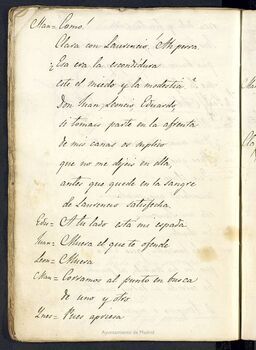 Man = Como!
Clara con Laurencio! Ah perra.
¿Era era la escondidura
este el miedo y la modestia?
Don Juan, Leoncio Eduardo,
si tomais parte en la afrenta
de mis canas os suplico
que no me dejeis en ella,
antes que quede en la sangre
de Laurencio satisfecha.
Edu = A tu lado está mi espada
Juan = Muera el que te ofende
Leon = Muera
Man = Corramos al punto en busca
de uno y otro
Ynes = Pues apriesa
Ayuntamiento de Madrid